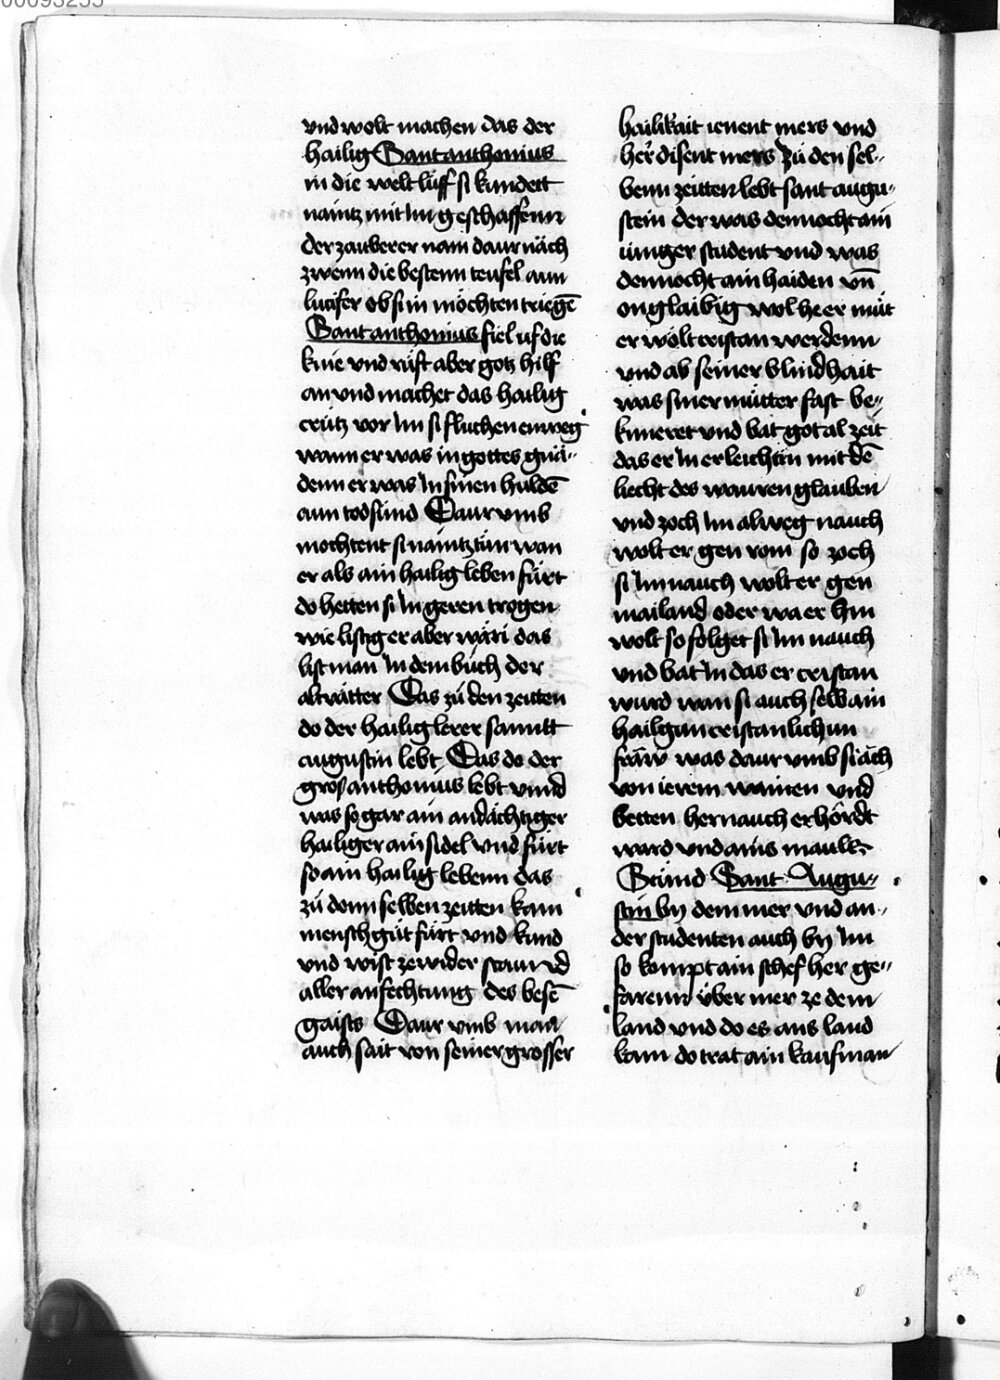 00093255
vnd wolt machen das der
hailig Sant anthonius
in die welt luff si kundett
naintz mit Im geschaffenn
der zauberer nam daur näch
zwenn die bestenn teufel aun
lucifer ob si in möchten triegē
Sant anthonius fiel uf die
knie vnd rüft aber gotz hilf
an vnd machet das hailig
crütz vor Im si fluchen enweg
wann er was in gottes gnä-
denn er was In sinen huldē
aun todsünd Daur vmb
mochtent si naintz tün wan
er als ain hailig leben fürt
do hetten si In geren trogen
wie listig er aber wäri das
list man In dem büch der
altvätter Das zü den zeitten
do der hailig lerer sanntt
augustin lebt Das do der
gros anthonius lebt vnnd
was so gar ain andächtiger
hailiger ainsidel vnd fürt
so ain hailig lebenn das
zü denn selben zeitten kain
mensch güt fürt vnd kund
vnd wist ze wider staund
aller anfechtung des besē
gaists Daur vmb man
auch sait von seiner grosser
hailikait ienent mers vnd
her disent mers Zü den sel-
benn zeitten lebt sant augu-
stein der was dennocht ain
iunger student vnd was
dennocht ain haiden vn̄
onglaibig wol het er müt
er wölt cristan werdenn
vnd ab seiner blindhait
was siner mütter fast be-
kimeret vnd bat got al zeit
das er In erleichtin mit dē
liecht des wauren glauben
vnd zoch Im alweg nauch
wolt er gen rom so zoch
si Im nauch wolt er gen
mailand oder wa er hin
wolt so folget si Im nauch
vnd bat In das er cristan
wurd wan si auch selb ain
hailgan cristanlichun
fraw was daur vmb si äch
von ierem wainen vnd
betten hernauch erhördt
ward vnd ains mauls
Stünd Sant Augu-
stin by dem mer vnd an-
der studenten auch by Im
so kompt ain schef her ge-
farenn über mer ze dem
land vnd do es ans land
kam do trat ain kaufman